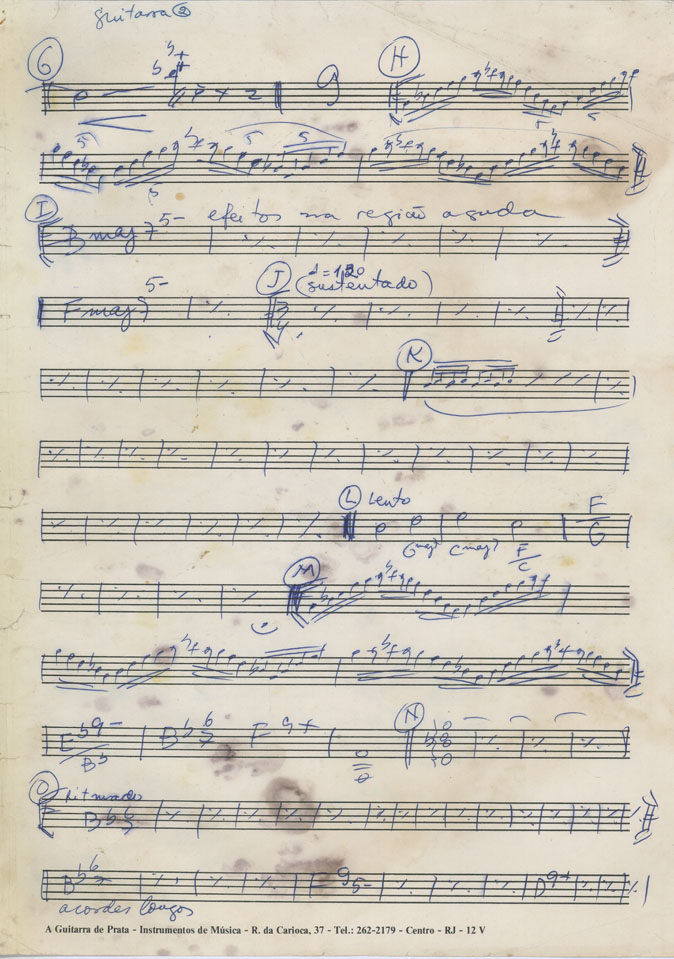 guitarra 2
G 9 H
5 5 5 5
5 5
I B maj7 5- efeitos na região aguda
F maj7 5- J ♩=120 (sustentado)
3/4
K
L Lento
Gmaj7 Cmaj7 F/C F/G
M
Eb9-/Bb Bb6/7 F9+ N
O Ritmado
Bb6/7
Bb6/7 F95- D9+
acordes longos
A Guitarra de Prata - Instrumentos de Música - R. da Carioca, 37 - Tel.: 262-2179 - Centro - RJ - 12 V